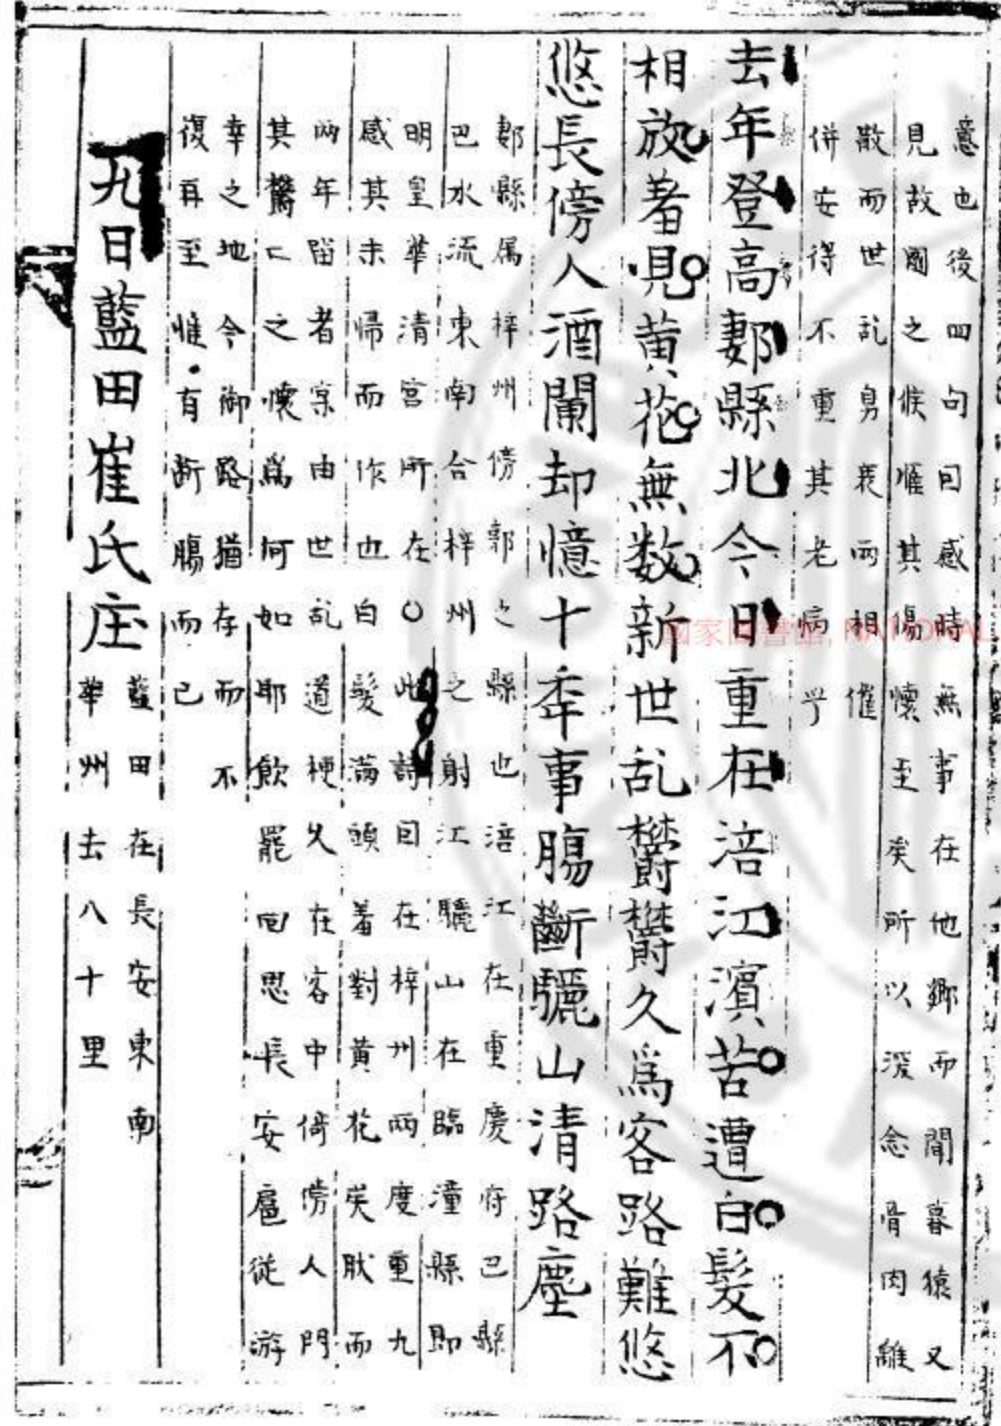 意也後四句回感時無事在他鄉而聞暮猿又
見故國之候雁其傷懷至矣所以深念骨肉離
散而世乱身衰兩相催
併安得不重其老病乎
去年登高郪縣北今日重在涪江濱苦遭白髮不
相放羞見黃花無数新世乱欝欝久爲客路難悠
悠長傍人酒闌却憶十年事腸斷驪山清路塵
郪縣属梓州傍郭之縣也涪江在重慶府巴縣
巴水流東南合梓州之射江驪山在臨潼縣即
明皇華清宮所在○此詩回在梓州兩度重九
感其未歸而作也白髮滿頭羞對黃花矣肰而
兩年留者寔由世乱道梗久在客中倚傍人門
其亡之懷爲何如耶飲罷回思長安扈從游
幸之地今御路猶存而不
復再至惟有断腸而已
九日藍田崔氏庄
藍田在長安東南
華州去八十里
國家圖書館, NATIONAL